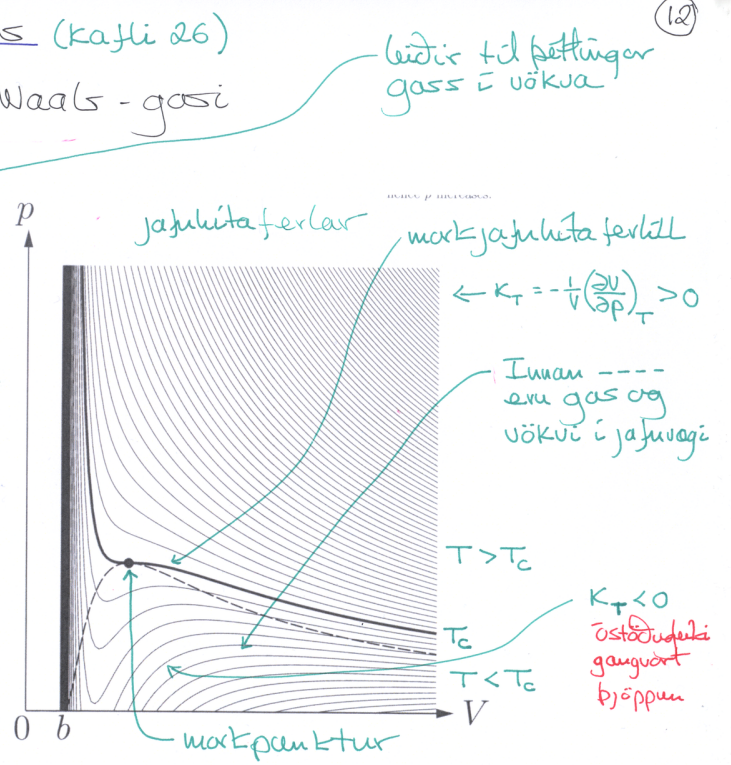 12
s (Kafli 26)
leiðir til þéttingar
gass í vökva
Waals-gasi
hence p increases.
p
jafnhitaferlar
markjafnhitaferill
← κ_T = -1/V (∂V/∂p)_T > 0
Innan ----
eru gas og
vökvi í jafnvægi
T > Tc
κ_T < 0
óstöðugleiki
gangvart
þjöppun
Tc
T < Tc
0 b V
markpunktur